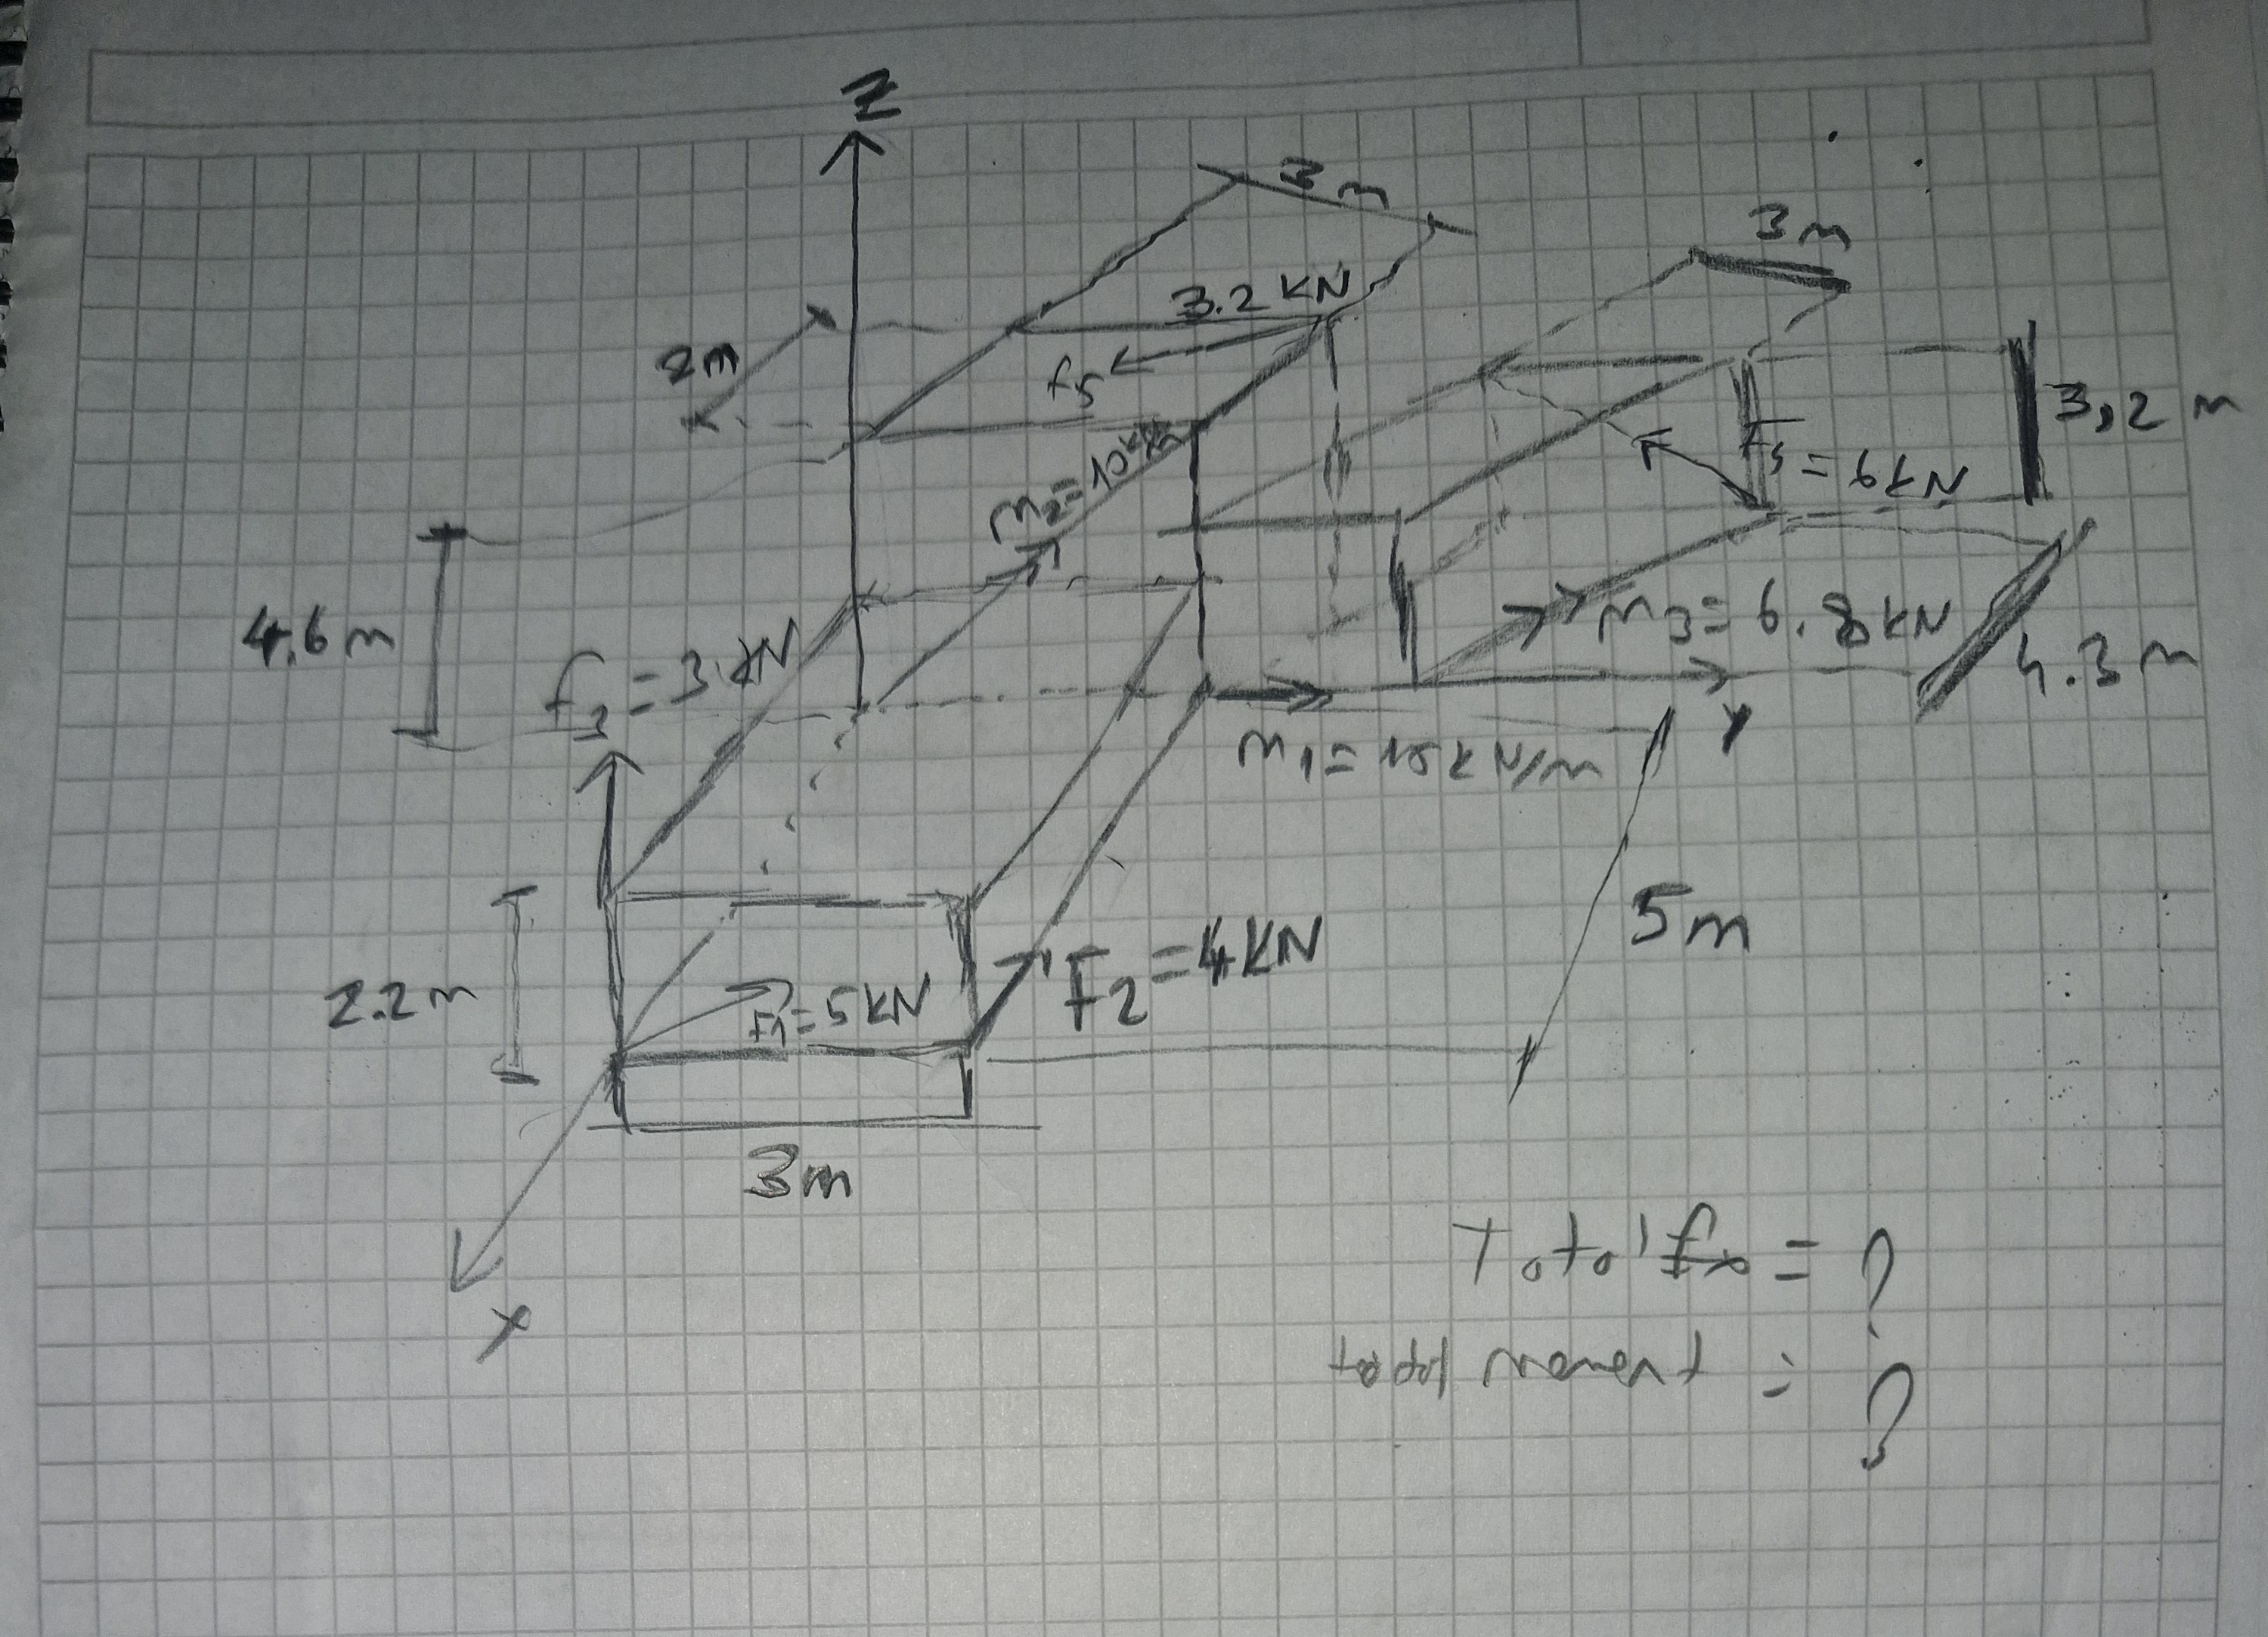 Z
3m
3m
3.2 KN
2m
f5
3,2 m
m2=10
F5 = 6KN
4.6 m
f3=3 KN
m3= 6.8 KN
4.3 m
Y
m1= KN/m
5m
F2=4KN
2.2m
F1=5KN
3m
X
= ?
total moment = ?